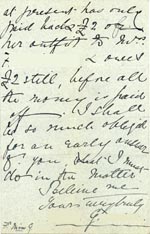 at present has only
paid back £2 of
her outfit to Mrs.
F. L owes
£2 still, before all
the money is paid
off. I shall
be so much obliged
for an early answer
to you, what I must
do in the matter
Believe me
Yours very truly